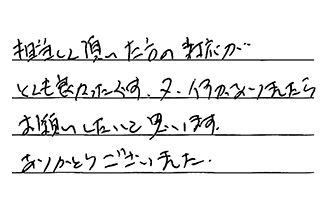 担当して頂いた方の対応が
とても良かったです。又、何かありましたら
お願いしたいと思います。
ありがとうございました。